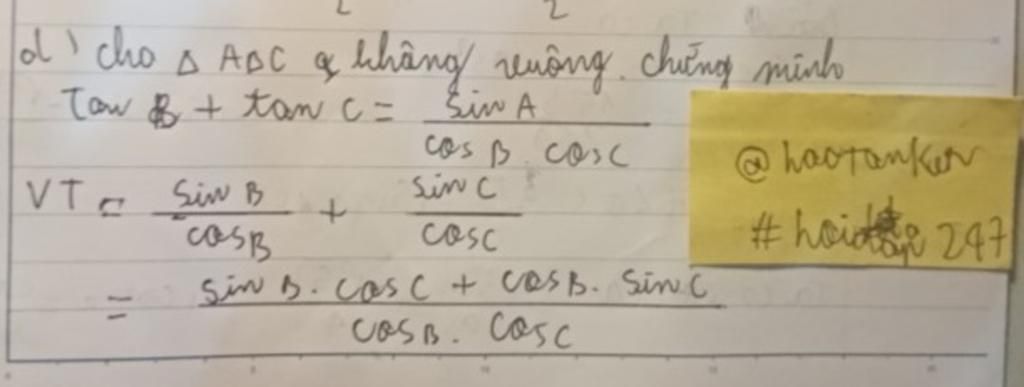 2 2
d) cho Δ ABC không vuông. chứng minh
Tan B + tan C = sin A / cos B . cos C
VT = sin B / cos B + sin C / cos C
= sin B . cos C + cos B . sin C / cos B . cos C
@haotanken
#hoidap 247